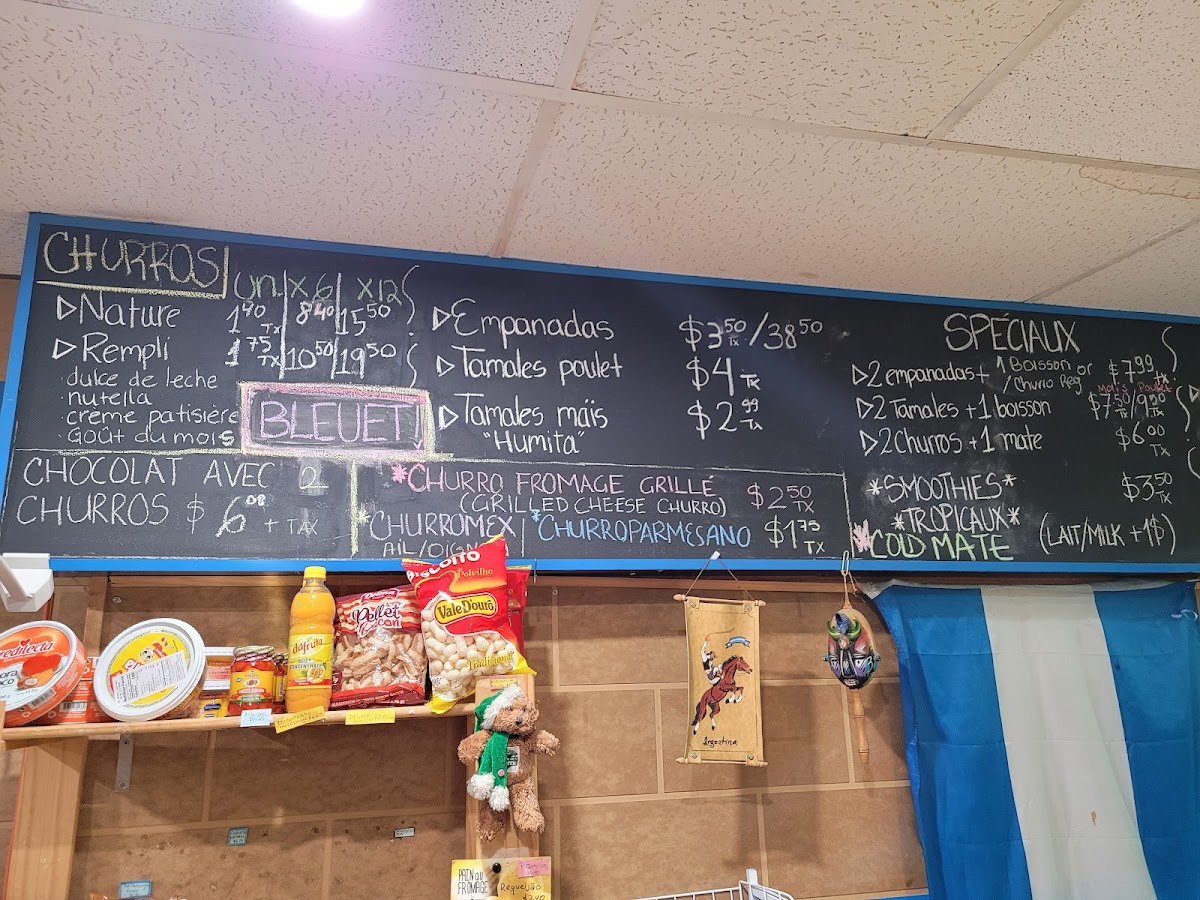 CHURROS
un. x6 x12
Nature 1.40 Tx 8.40 15.50
Rempli 1.75 Tx 10.50 19.50
dulce de leche
nutella
creme patisière
Goût du mois
BLEUET!
CHOCOLAT AVEC 2
CHURROS $ 6.00 + TAX
Empanadas $3.50 Tx /38.50
Tamales poulet $4 Tx
Tamales maïs $2.99 Tx
"Humita"
*CHURRO FROMAGE GRILLE $2.50 TX
(GRILLED CHEESE CHURRO)
*CHURROMEX
AIL/OIGN
*CHURROPARMESANO $1.75 TX
SPÉCIAUX
2 empanadas + 1 Boisson or $7.99
/Churro Reg
2 Tamales + 1 boisson Maïs $7.50 Tx / Poulet 9.50 Tx
2 Churros + 1 mate $6.00 TX
*SMOOTHIES* $3.50 TX
*TROPICAUX*
*COLD MATE (LAIT/MILK +1$)
Predilecta
dafruta
Pellet
BISCOITO
Polvilho
Vale D'ourô
Tradicional
Argentina
PAIN AU
FROMAGE
Requeijão